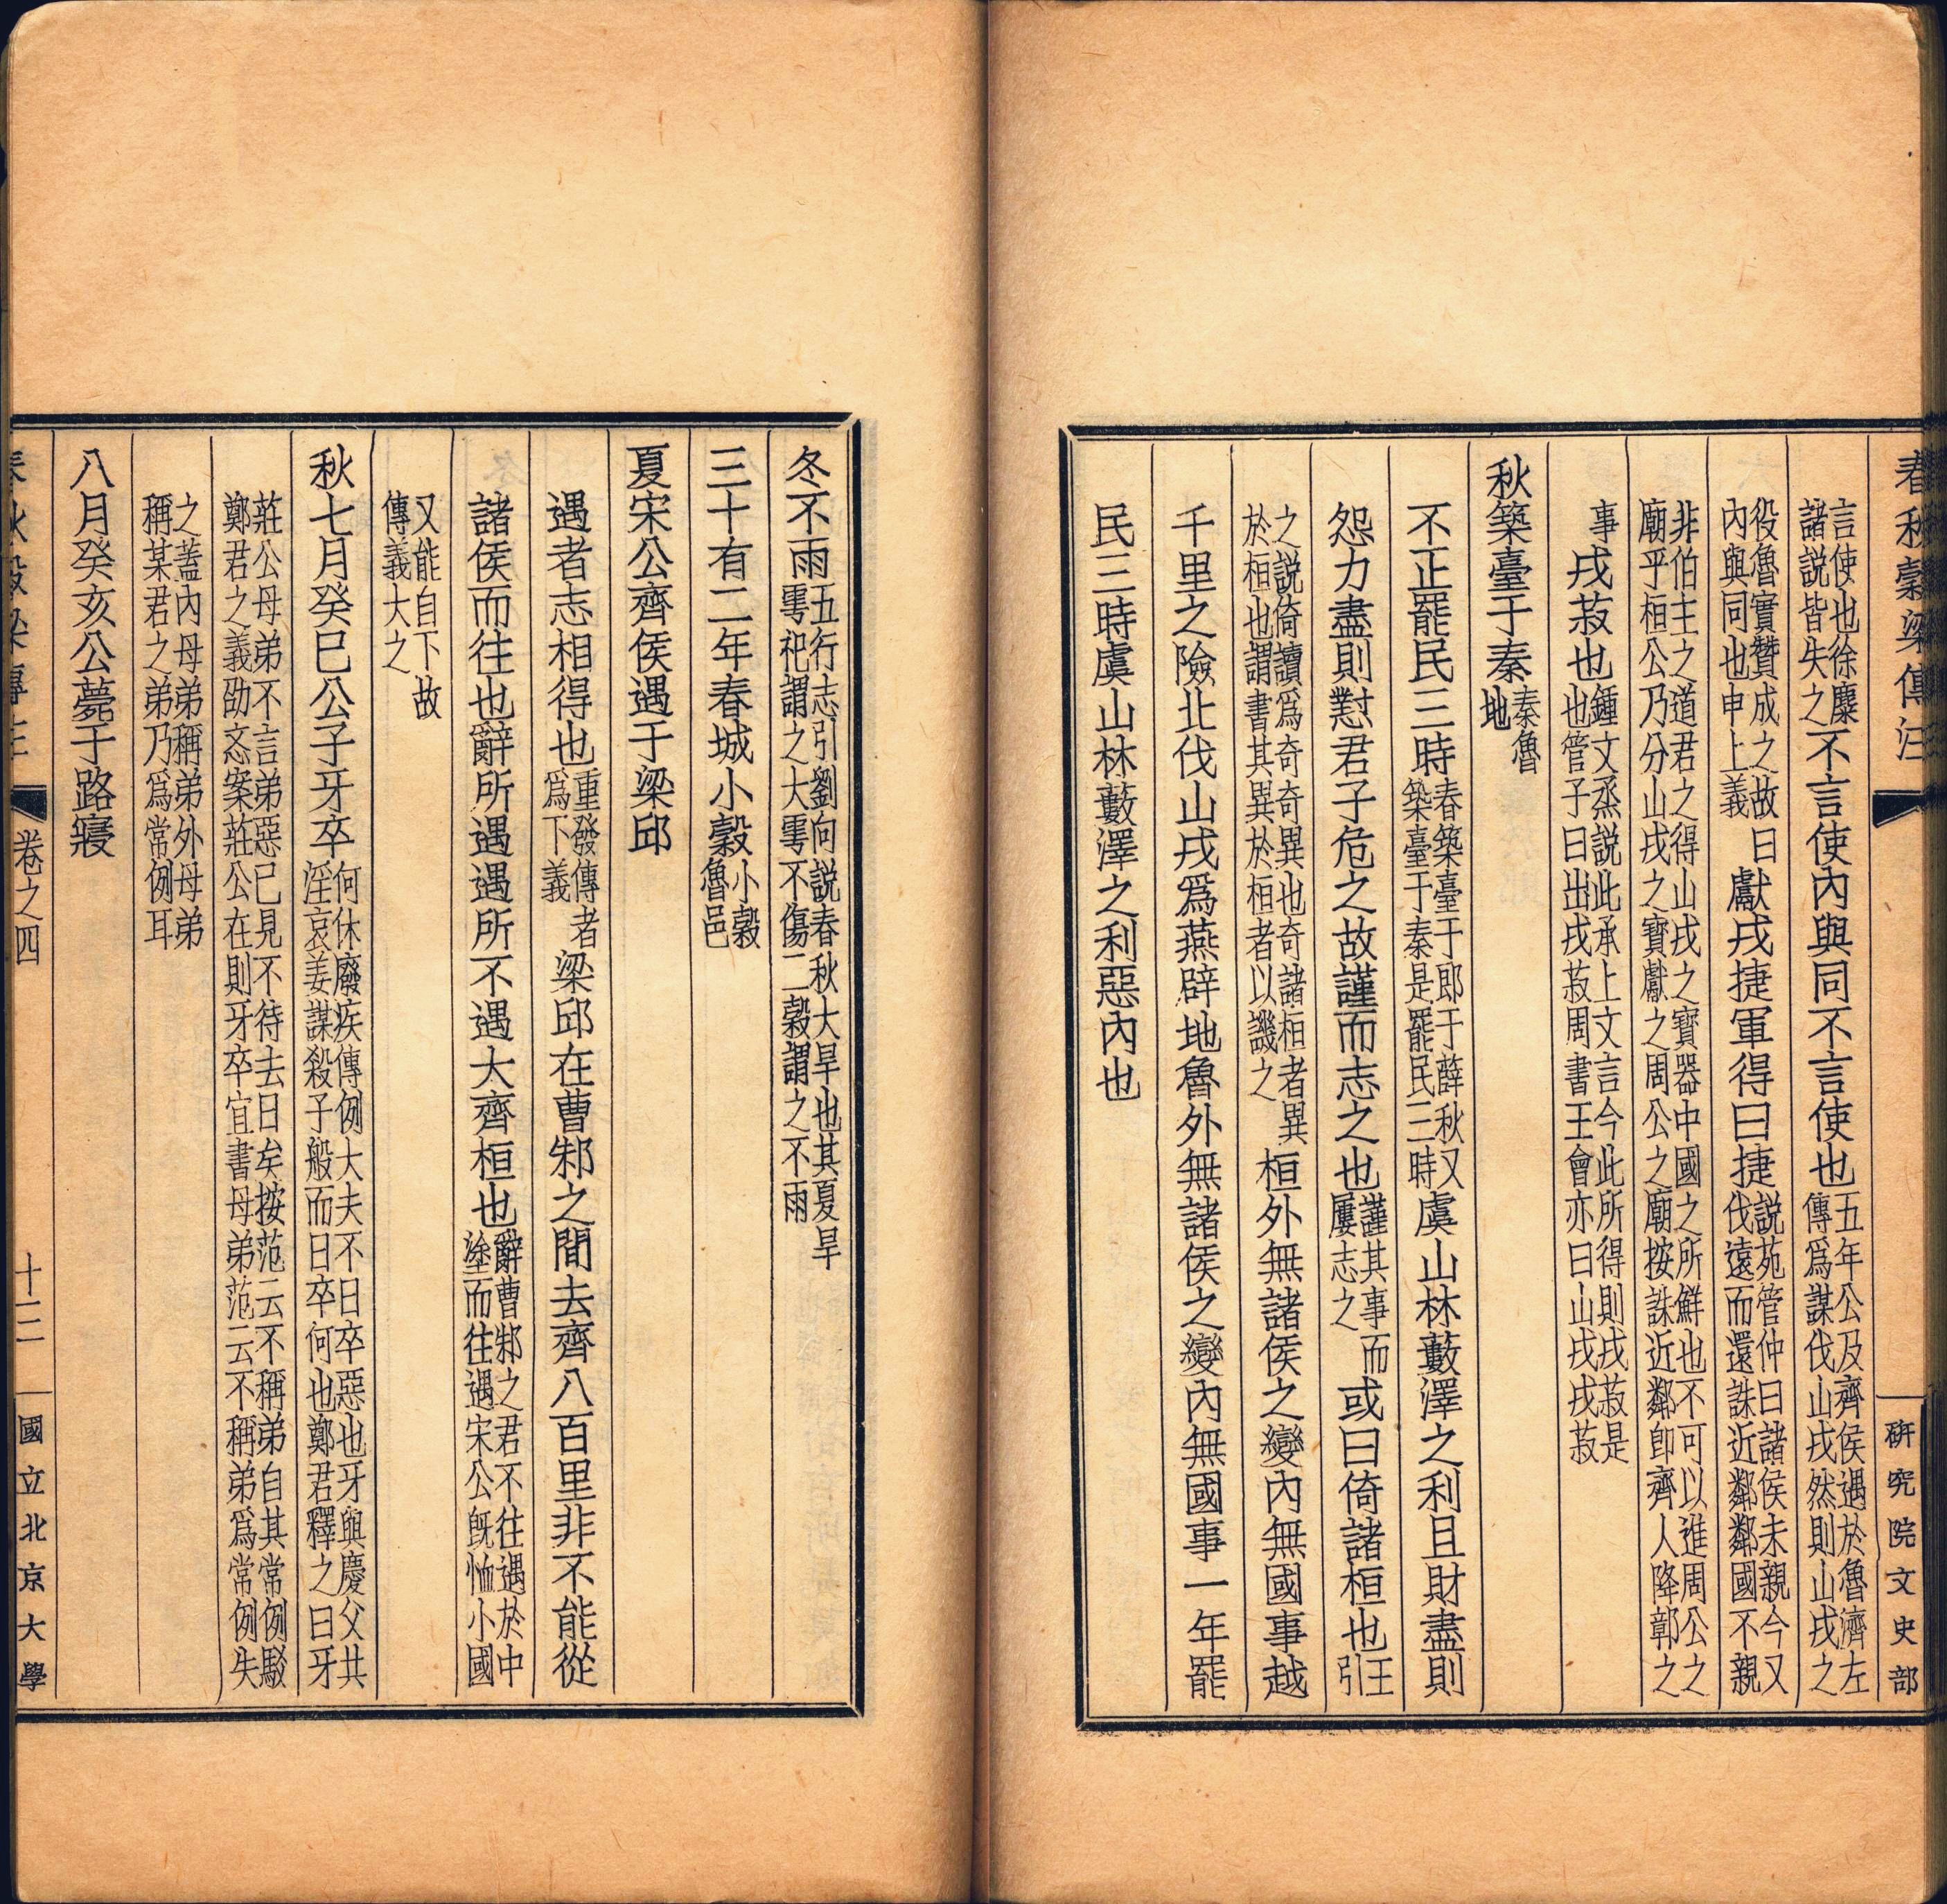 春秋穀梁傳注
研究院文史部
言使也徐麋
諸說皆失之
不言使內與同不言使也
五年公及齊侯遇於魯濟左
傳爲謀伐山戎然則山戎之
役魯實贊成之故
內與同也申上義
曰獻戎捷軍得曰捷
說苑管仲曰諸侯未親今又
伐遠而還誅近鄰鄰國不親
非伯主之道君之得山戎之寶器中國之所鮮也不可以進周公之
廟乎桓公乃分山戎之寶獻之周公之廟按誅近鄰卽齊人降鄣之
事
戎菽也
鍾文烝說此承上文言今此所得則戎菽是
也管子曰出戎菽周書王會亦曰山戎戎菽
秋築臺于秦
秦魯
地
不正罷民三時
春築臺于郎于薛秋又
築臺于秦是罷民三時
虞山林藪澤之利且財盡則
怨力盡則懟君子危之故謹而志之也
謹其事而
屢志之
或曰倚諸桓也
王
引
之說倚讀爲奇奇異也奇諸桓者異
於桓也謂書其異於桓者以譏之
桓外無諸侯之變內無國事越
千里之險北伐山戎爲燕辟地魯外無諸侯之變內無國事一年罷
民三時虞山林藪澤之利惡內也
冬不雨
五行志引劉向說春秋大旱也其夏旱
雩祀謂之大雩不傷二穀謂之不雨
三十有二年春城小穀
小穀
魯邑
夏宋公齊侯遇于梁邱
遇者志相得也
重發傳者
爲下義
梁邱在曹邾之間去齊八百里非不能從
諸侯而往也辭所遇遇所不遇大齊桓也
辭曹邾之君不往遇於中
塗而往遇宋公旣恤小國
又能自下故
傳義大之
秋七月癸巳公子牙卒
何休廢疾傳例大夫不日卒惡也牙與慶父共
淫哀姜謀殺子般而日卒何也鄭君釋之曰牙
莊公母弟不言弟惡已見不待去日矣按范云不稱弟自其常例駁
鄭君之義劭忞案莊公在則牙卒宜書母弟范云不稱弟爲常例失
之蓋內母弟稱弟外母弟
稱某君之弟乃爲常例耳
八月癸亥公薨于路寢
卷之四
十二
國立北京大學